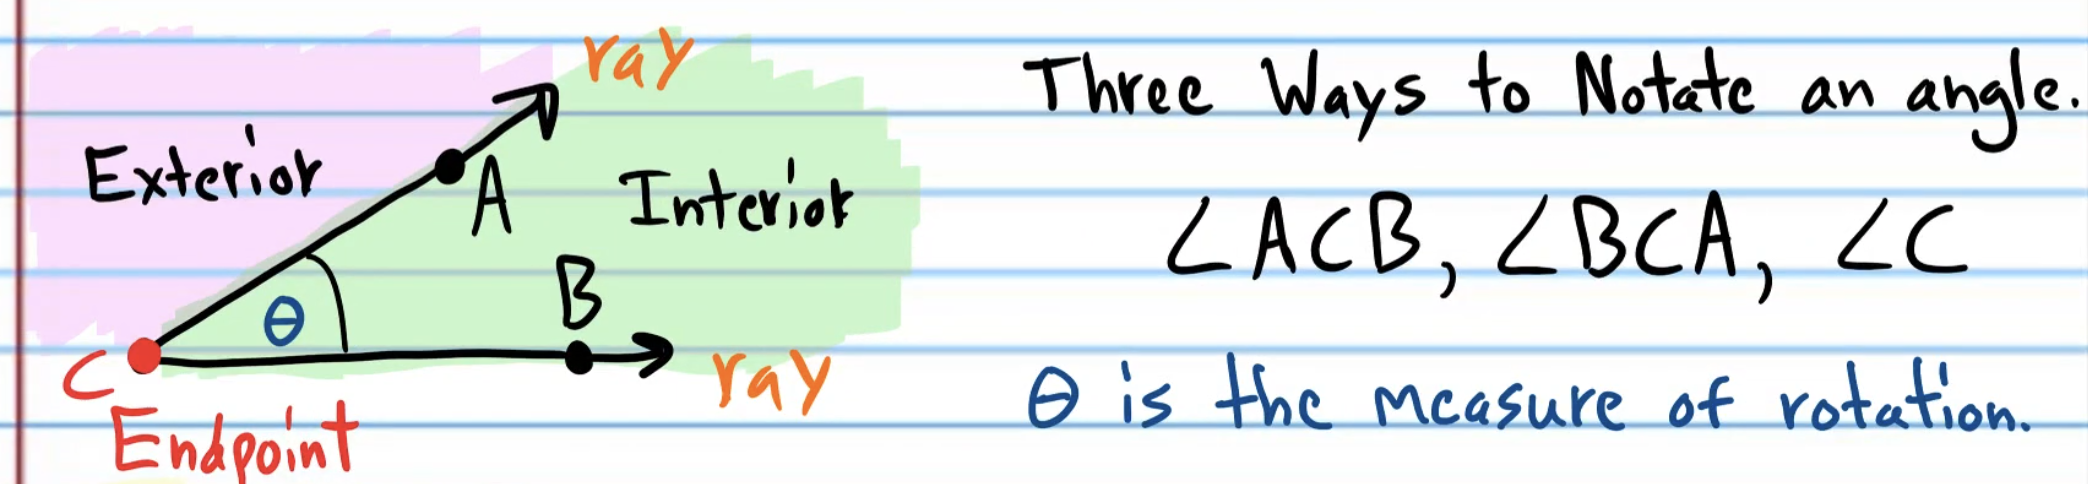 ray
Exterior
A
Interior
B
θ
C
ray
Endpoint
Three Ways to Notate an angle.
∠ACB, ∠BCA, ∠C
θ is the measure of rotation.